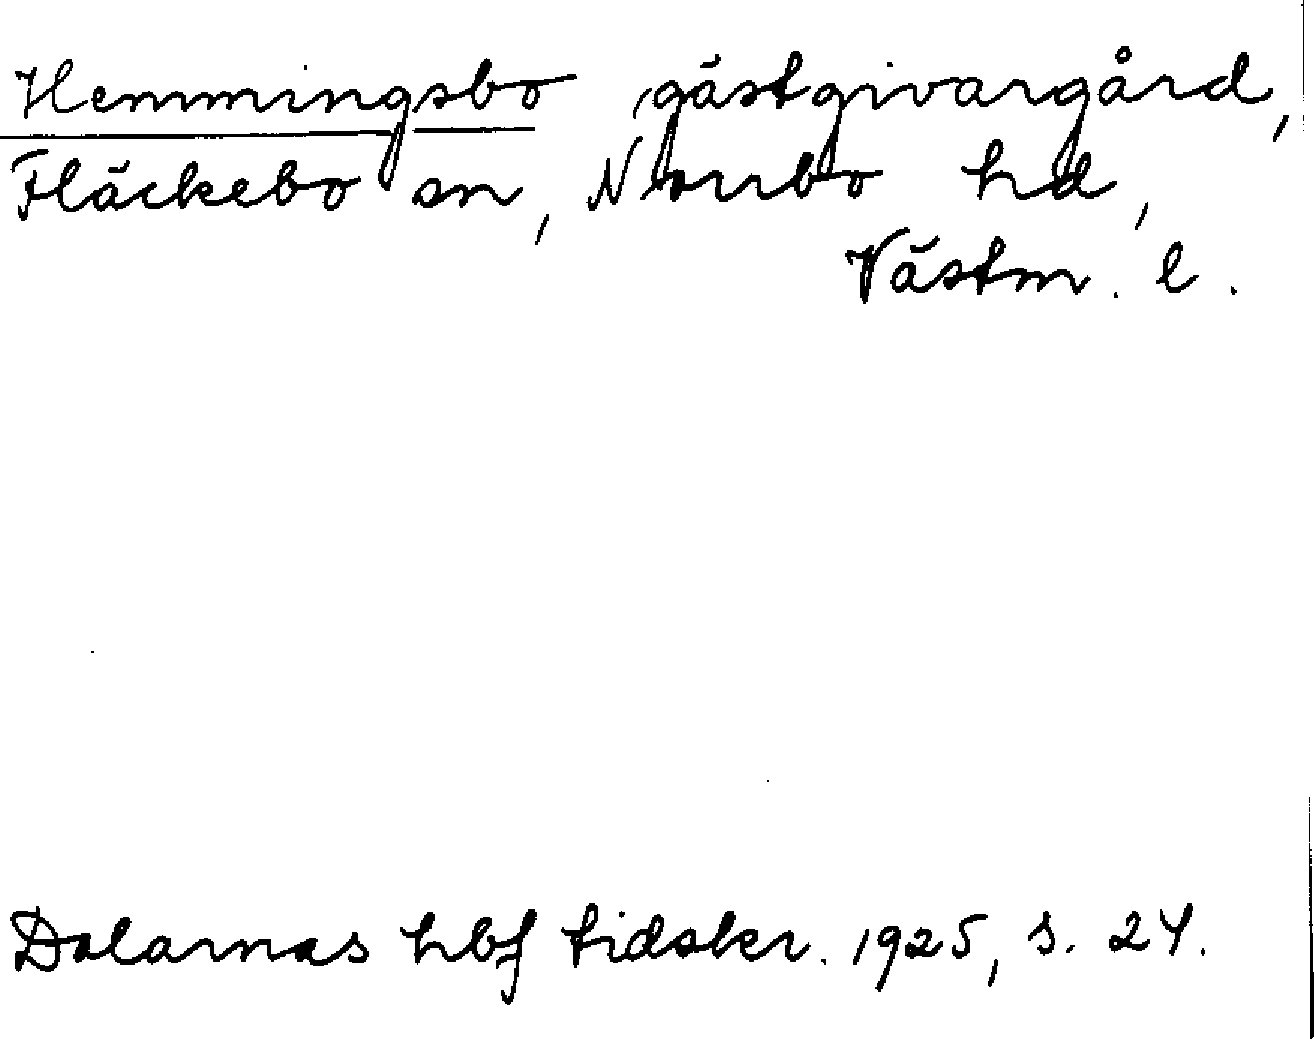 Hemmingsbo gästgivargård,
Fläckebo sn, Norrbo hd,
Västm. l.
Dalarnas hbf tidskr. 1925, s. 24.